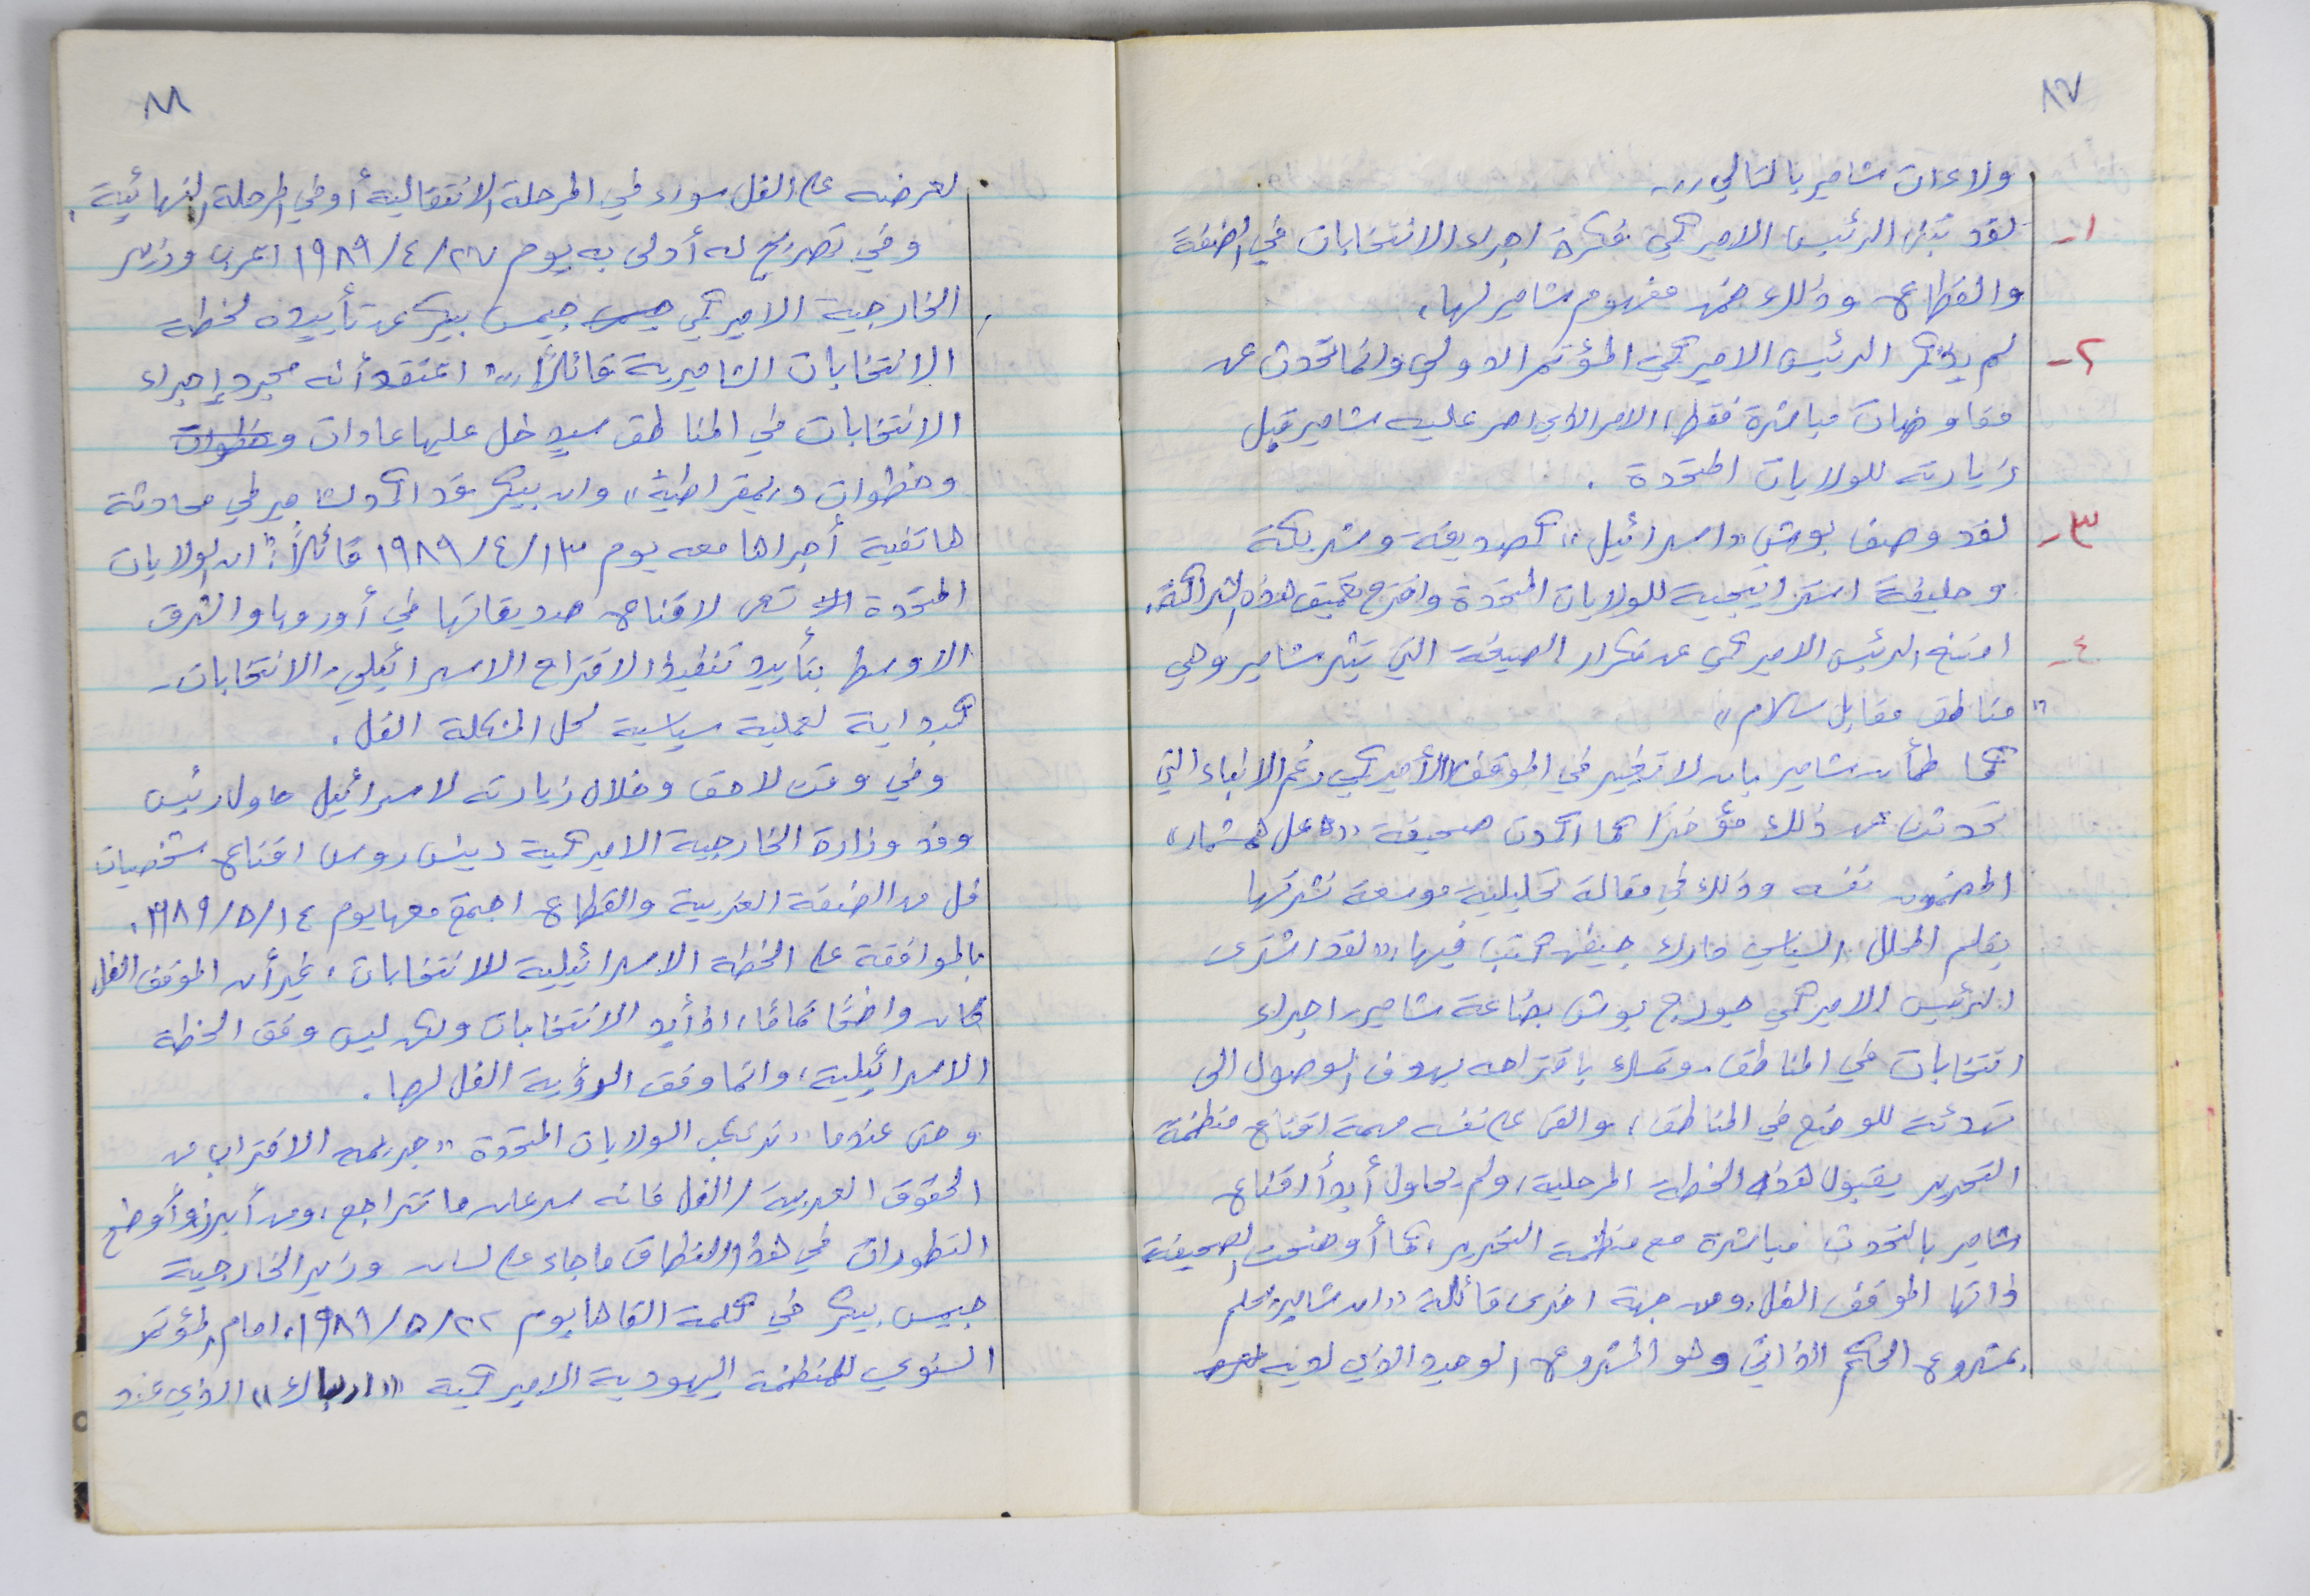 ٨٧
ولاءات شامير بالتالي ..
١- لقد تبنى الرئيس الاميركي فكرة اجراء الانتخابات في الضفة
والقطاع وذلك ضمن مفهوم شامير لها.
٢- لم يذكر الرئيس الاميركي المؤتمر الدولي وانما تحدث عن
مفاوضات مباشرة فقط، الامر الذي اصر عليه شامير قبل
زيارته للولايات المتحدة .
٣- لقد وصف بوش "اسرائيل" كصديقة وشريكة
وحليفة استراتيجية للولايات المتحدة واقترح تعميق هذه الشراكة.
٤- امتنع الرئيس الاميركي عن تكرار الصيغة التي تثير شامير وهي
"مناطق مقابل سلام"
كما طمأن شامير بان لا تغيير في الموقف الأميركي رغم الانباء التي
تحدثت عن ذلك مؤخراً كما اكدت صحيفة "عل همشمار"
المضمون نفسه وذلك في مقالة تحليلية موسعة نشرتها
بقلم المحلل السياسي مارك جيفن كتب فيها، "لقد اشترى
الرئيس الاميركي جورج بوش بضاعة شامير، اجراء
انتخابات في المناطق. وتمسك باقتراحه بهدف الوصول الى
تهدئة للوضع في المناطق، والقى على نفسه مهمة اقناع منظمة
التحرير بقبول هذه الخطة المرحلية، ولم يحاول أبداً اقناع
شامير بالتحدث مباشرة مع منظمة التحرير، كما أوضحت الصحيفة
ذاتها الموقف الفل، ومن جهة اخرى قائلة "ان شامير يحلم
بمشروع الحكم الذاتي وهو المشروع الوحيد الذي لديه
٨٨
لعرضه على الفل سواء في المرحلة الانتقالية أو في المرحلة النهائية.
وفي تصريح له أدلى به يوم ٢٧/٤/١٩٨٩ اعرب وزير
الخارجية الاميركي جيمس جيمس بيكر عن تأييده لخطة
الانتخابات الشاميرية قائلاً: "اعتقد أنه مجرد إجراء
الانتخابات في المناطق سيدخل عليها عادات وخطوات
وخطوات ديمقراطية" وان بيكر قد اكد لشامير في محادثة
هاتفية أجراها معه يوم ١٣/٤/١٩٨٩ قائلاً: "ان الولايات
المتحدة تسعى لاقناع صديقاتها في أوروبا والشرق
الاوسط بتأييد تنفيذ الاقتراح الاسرائيلي - الانتخابات -
كبداية لعملية سياسية لحل المشكلة الفل .
وفي وقت لاحق وخلال زيارته لاسرائيل حاول رئيس
وفد وزارة الخارجية الاميركية دينس روس اقناع شخصيات
فل من الضفة الغربية والقطاع اجتمع معها يوم ١٤/٥/١٩٨٩.
بالموافقة على الخطة الاسرائيلية للانتخابات، غير أن الموقف الفل
كان واضحًا تمامًا، اذ أيد الانتخابات ولكن ليس وفق الخطة
الاسرائيلية، وانما وفق الرؤية الفل لها .
وحتى عندما "ترتكب الولايات المتحدة "جريمة الاقتراب من
الحقوق العربية / الفل فانه سرعان ما تتراجع، ومن أبرز وأوضح
التطورات في هذا النطاق ما جاء على لسان وزير الخارجية
جيمس بيكر في كلمة القاها يوم ٢٢/٥/١٩٨٩، امام المؤتمر
السنوي للمنظمة اليهودية الاميركية "ايباك" الذي عقد